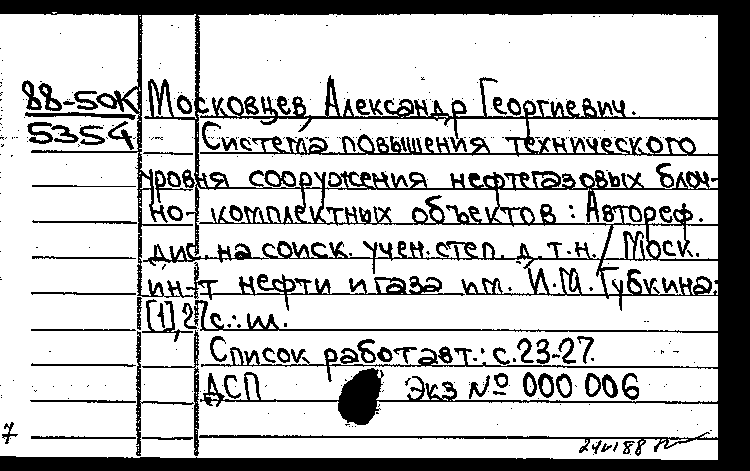 88-50К Московцев, Александр Георгиевич.
5354 Система повышения технического
уровня сооружения нефтегазовых блоч-
но-комплектных объектов : Автореф.
дис. на соиск. учен. степ. д.т.н. / Моск.
ин-т нефти и газа им. И.М. Губкина.
[1], 27 с. : ил.
Список работ авт.: с. 23-27.
ДСП Экз № 000 006
7